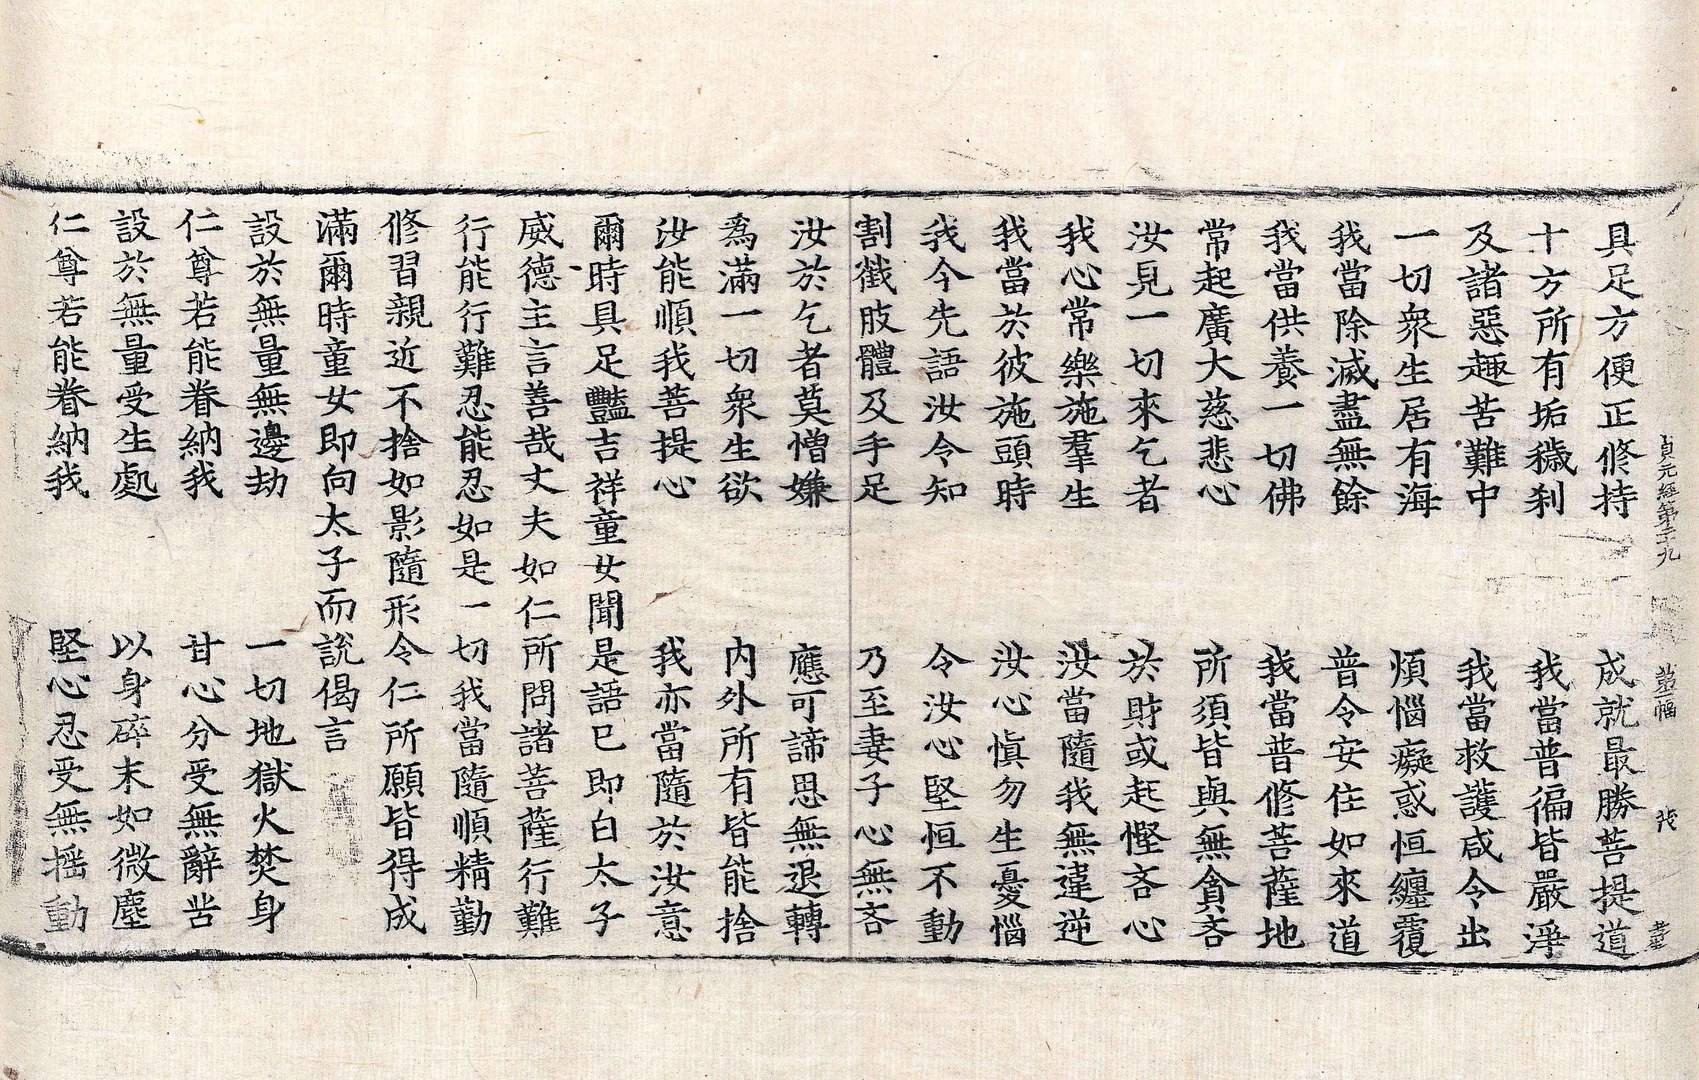 貞元經第二十九 茂
具足方便正修持 成就最勝菩提道
十方所有垢穢刹 我當普徧皆嚴淨
及諸惡趣苦難中 我當救護咸令出
一切衆生居有海 煩惱癡惑恒纏覆
我當除滅盡無餘 普令安住如來道
我當供養一切佛 我當普修菩薩地
常起廣大慈悲心 所須皆與無貪吝
汝見一切來乞者 於財或起慳吝心
我心常樂施羣生 汝當隨我無違逆
我當於彼施頭時 汝心愼勿生憂惱
我今先語汝令知 令汝心堅恒不動
割截肢體及手足 乃至妻子心無吝
汝於乞者莫憎嫌 應可諦思無退轉
爲滿一切衆生欲 內外所有皆能捨
汝能順我菩提心 我亦當隨於汝意
爾時具足豔吉祥童女聞是語已即白太子
威德主言善哉丈夫如仁所問諸菩薩行難
行能行難忍能忍如是一切我當隨順精勤
修習親近不捨如影隨形令仁所願皆得成
滿爾時童女即向太子而說偈言
設於無量無邊劫 一切地獄火焚身
仁尊若能眷納我 甘心分受無辭苦
設於無量受生處 以身碎末如微塵
仁尊若能眷納我 堅心忍受無搖動